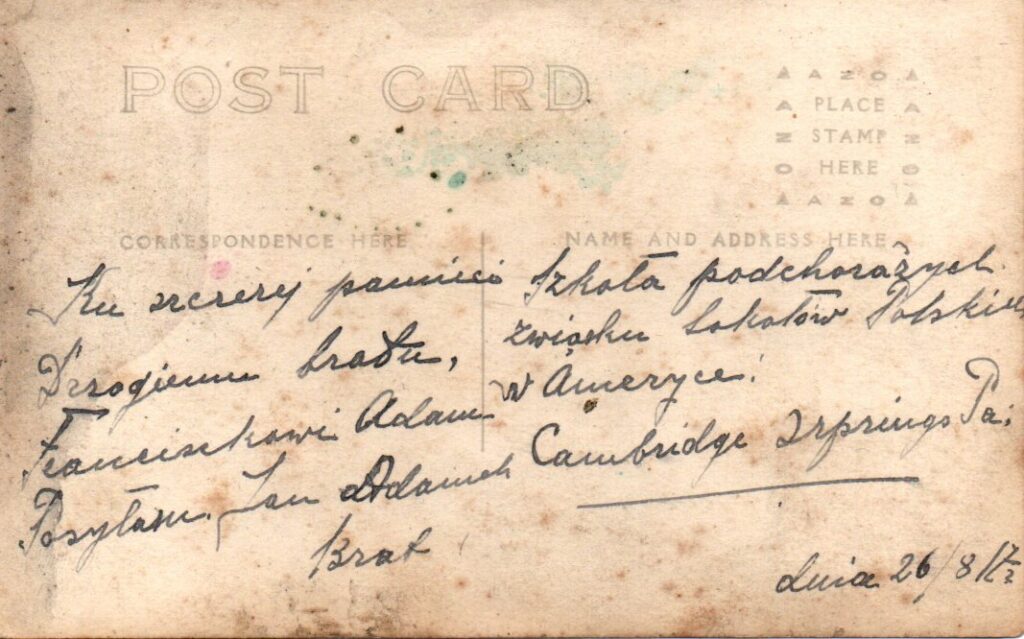 POST CARD
AZO
PLACE
STAMP
HERE
AZO
CORRESPONDENCE HERE
NAME AND ADDRESS HERE
Ku szczerej pamieci
Drzogiemu bratu,
Franciszkowi Adam
Posyłam Jan Adamek
Brat
Szkoła podchorążych
związku Sokołów Polskich
w Ameryce.
Cambridge Szprings Pa.
dnia 26/8 17